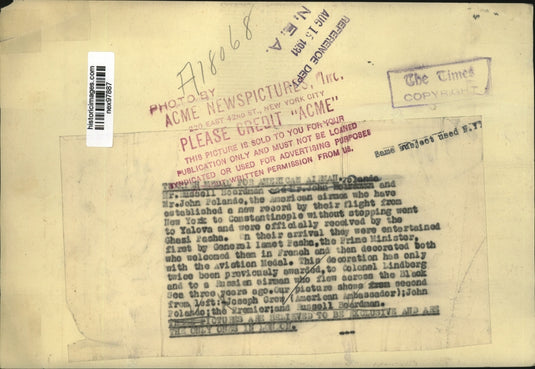 historicimages.com
nex97887
A18068
REFERENCE DEPT
AUG 15 1931
N. E. A.
PHOTO BY
ACME NEWSPICTURES, Inc.
220 EAST 42ND ST., NEW YORK CITY
PLEASE CREDIT "ACME"
THIS PICTURE IS SOLD TO YOU FOR YOUR
PUBLICATION ONLY AND MUST NOT BE LOANED
SYNDICATED OR USED FOR ADVERTISING PURPOSES
WRITTEN PERMISSION FROM US.
The Times
COPYRIGHT
Same Subject used N.Y.
FOR AMERICAN AIRMAN.
Mr. Russell Boardman and
Mr.John Polando, the American airmen who have
established a new record by their flight from
New York to Constantinople without stopping went
to Yalova and were officially received by the
Ghazi Pasha. On their arrival they were entertained
first by General Ismet Pasha, the Prime Minister,
who welcomed them in French and then decorated both
with the Aviation Medal. This decoration has only
twice been previously awarded, to Colonel Lindberg
and to a Russian airman who flew across the Black
Sea three years ago.Our picture shows from second
from left:-Joseph Grew (American Ambassador);John
Polando;the Premier;and Russell Boardman.
PICTURES ARE BELIEVED TO BE EXCLUSIVE AND ARE
THE ONLY ONES IN LONDON.